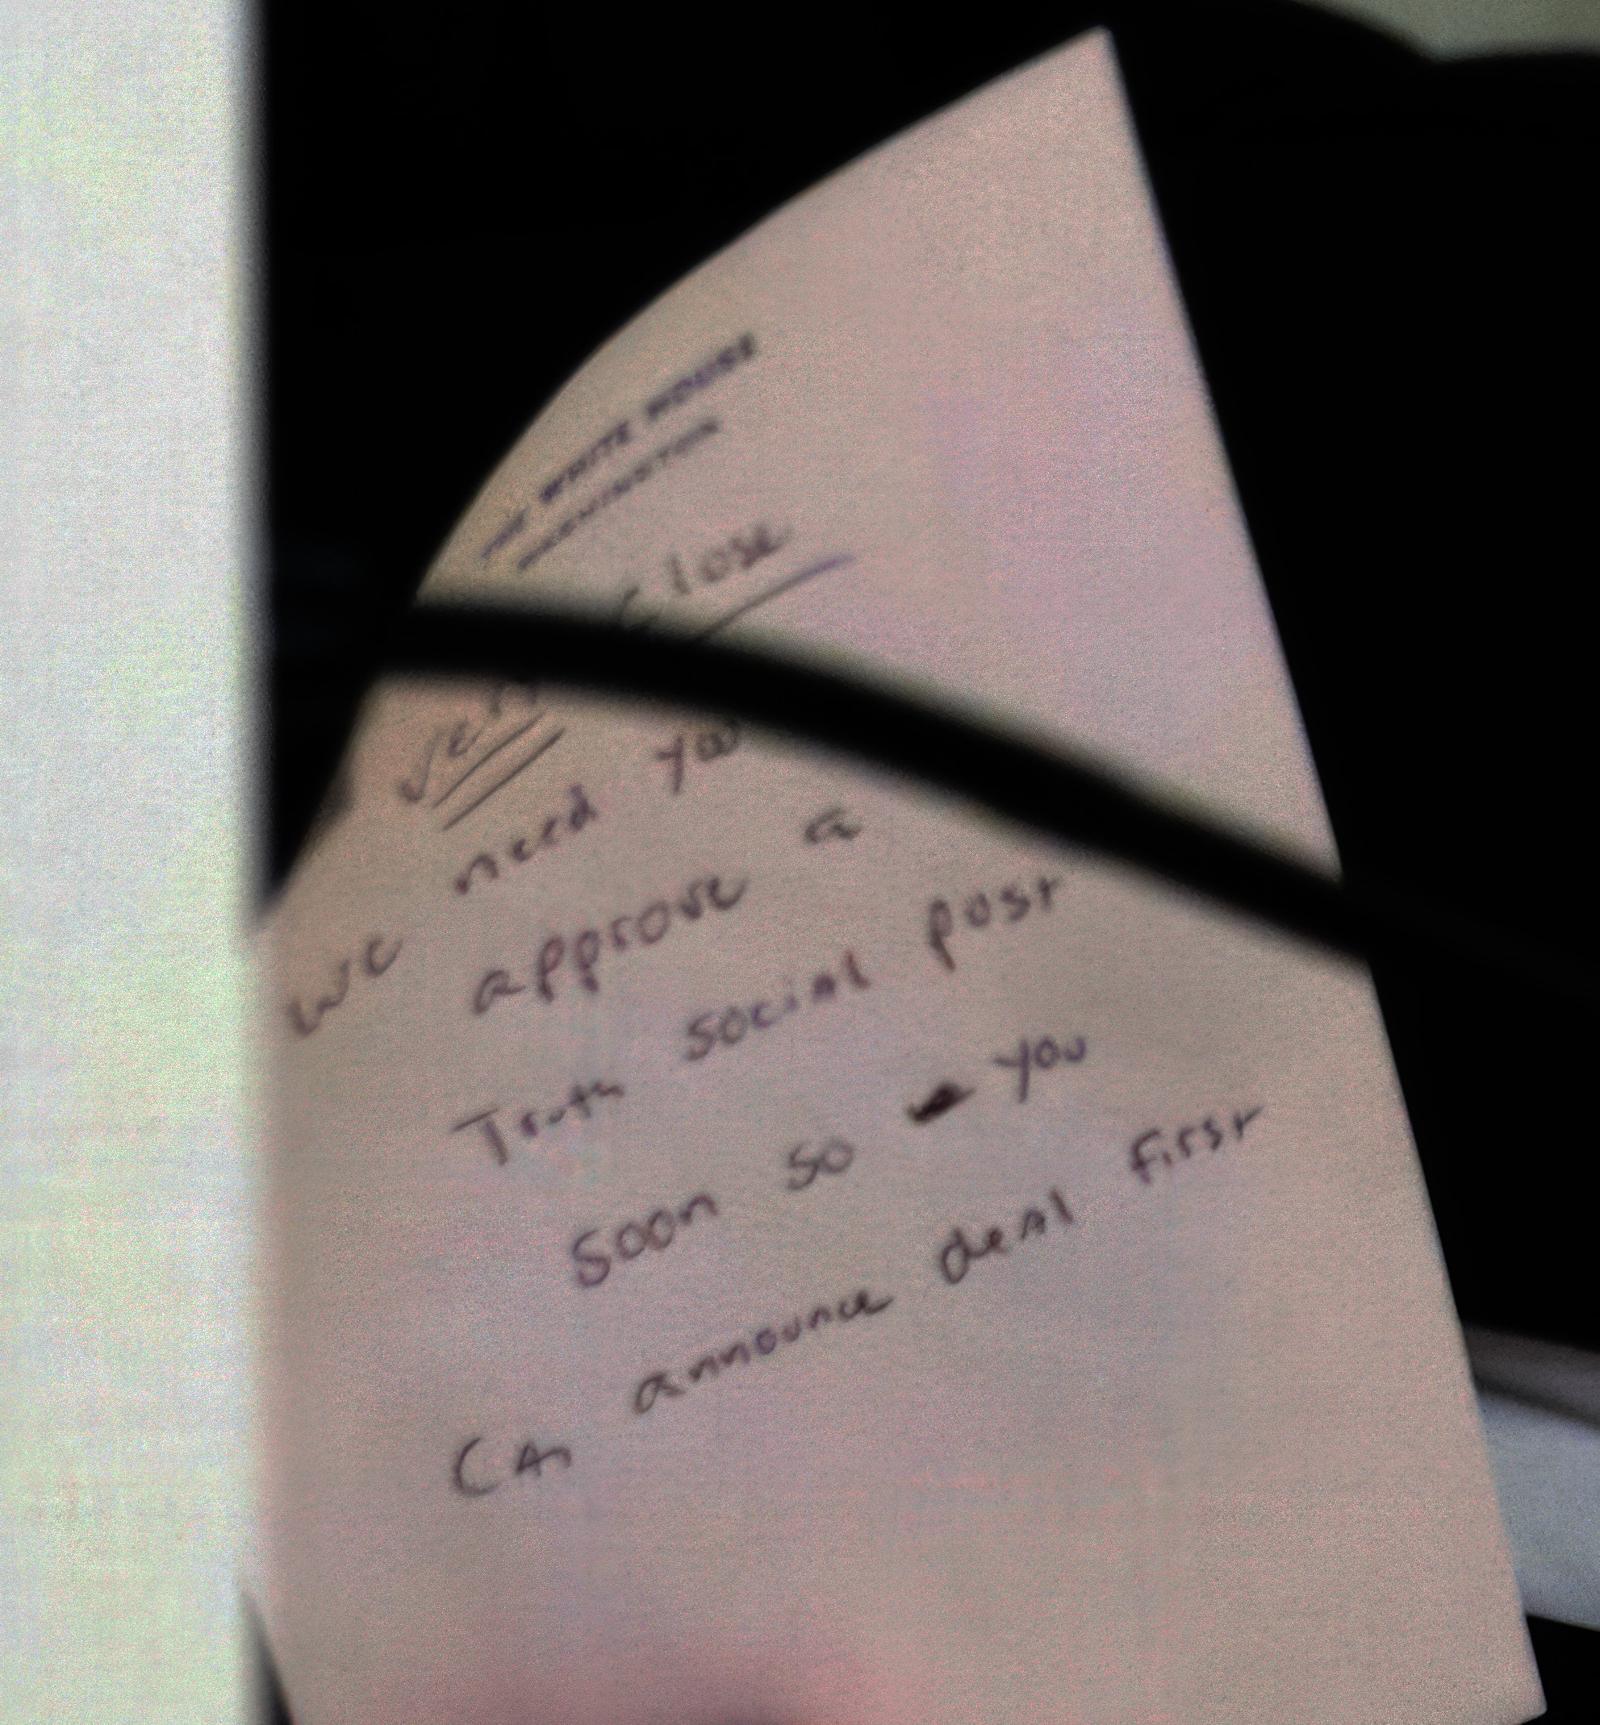 THE WHITE HOUSE
WASHINGTON
Very Close
We need you
approve a
Truth Social post
soon so you
can announce deal first